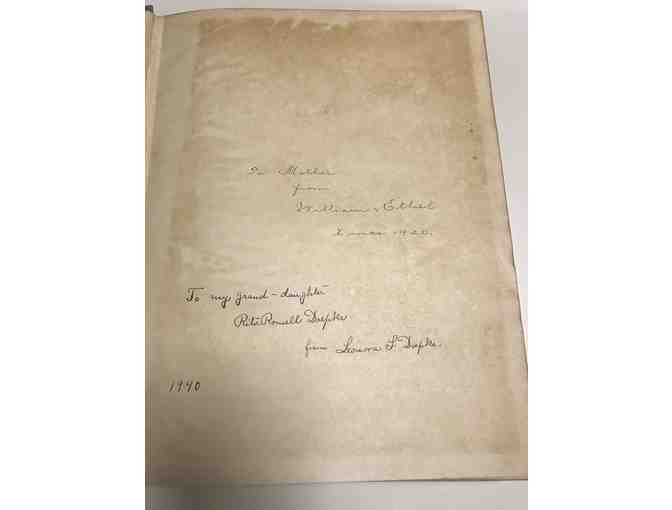 To Mother
from
William & Ethel
Xmas 1920.
To my grand-daughter
Rita Diepke
from Leonora L. Diepke.
1940